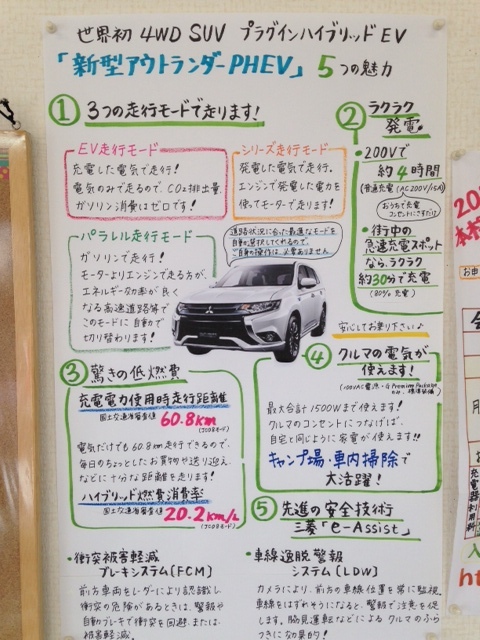 世界初 4WD SUV プラグインハイブリッドEV
「新型アウトランダーPHEV」 5つの魅力
① 3つの走行モードで走ります!
EV走行モード
充電した電気で走行!
電気のみで走るので、CO₂排出量
ガソリン消費はゼロです!
シリーズ走行モード
発電した電気で走行。
エンジンで発電した電力を
使ってモーターで走ります!
パラレル走行モード
ガソリンで走行!
モーターよりエンジンで走る方が、
エネルギー効率が良く
なる高速道路等で
このモードに自動で
切り替わります!
道路状況に合った最適なモードを
自動で選択してくれるので、
ご自身の操作は必要ありません
② ラクラク
発電。
・200Vで
約4時間
(普通充電(AC200V/15A)
おうちで充電
コンセントにさすだけ
・街中の
急速充電スポット
なら、ラクラク
約30分で充電
(80%充電)
安心してお乗り下さい♪
③ 驚きの低燃費
充電電力使用時走行距離
国土交通省審査値 60.8km
(JC08モード)
電気だけでも60.8km走行できるので、
毎日のちょっとしたお買物や送り迎え
などに十分な距離を走ります!
ハイブリッド燃費消費率
国土交通省審査値 20.2km/L
(JC08モード)
④ クルマの電気が
使えます!
(100VAC電源・G Premium Package
標準装備)
最大合計1500Wまで使えます!
クルマのコンセントにつなげば、
自宅と同じように家電が使えます!!
キャンプ場・車内掃除で
大活躍!
⑤ 先進の安全技術
三菱「e-Assist」
・衝突被害軽減
ブレーキシステム[FCM]
前方車両をレーダーにより認識し
衝突の危険があるときは、警報や
自動ブレーキで衝突を回避、または
被害軽減。
・車線逸脱警報
システム[LDW]
カメラにより、前方の車線位置を常に監視。
車線をはずれそうになると、警報で注意を促
します。脇見運転などによるクルマのふら
つきに気づかり!